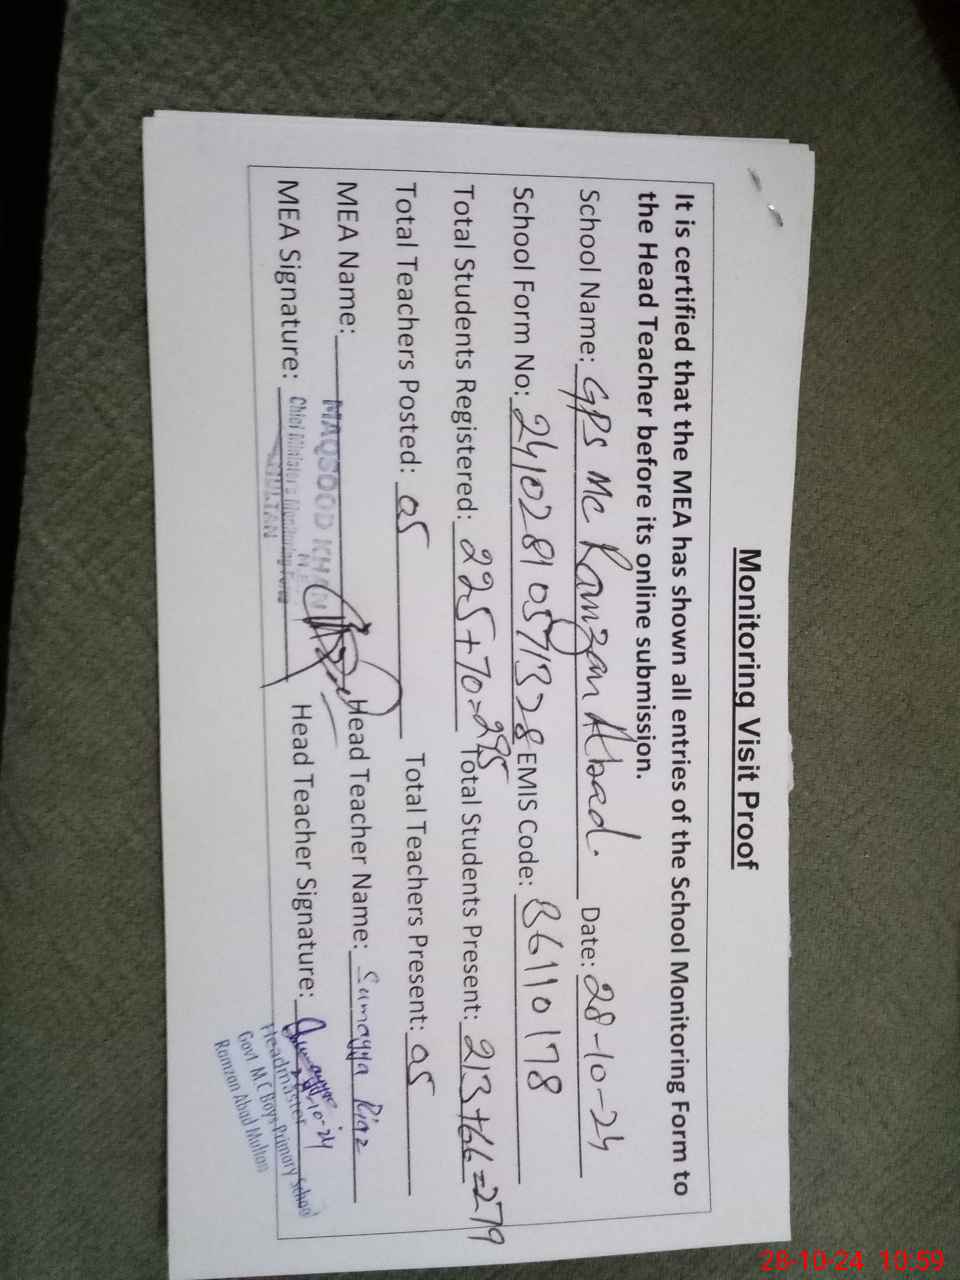 Monitoring Visit Proof
It is certified that the MEA has shown all entries of the School Monitoring Form to
the Head Teacher before its online submission.
School Name: GPS MC Ramzan Abad. Date: 28-10-24
School Form No: EMIS Code: 36110178
Total Students Registered: 225+70=295 Total Students Present: 213+66=279
Total Teachers Posted: 05 Total Teachers Present: 05
MEA Name: MAQSOOD KHAN Head Teacher Name: Sumayya Riaz
MEA
MEA Signature: Chief Minister's Monitoring Force Head Teacher Signature:
MULTAN
28-10-24
Headmaster
Govt M.C Boys Primary School
Ramzan Abad Multan
28-10-24 10:59